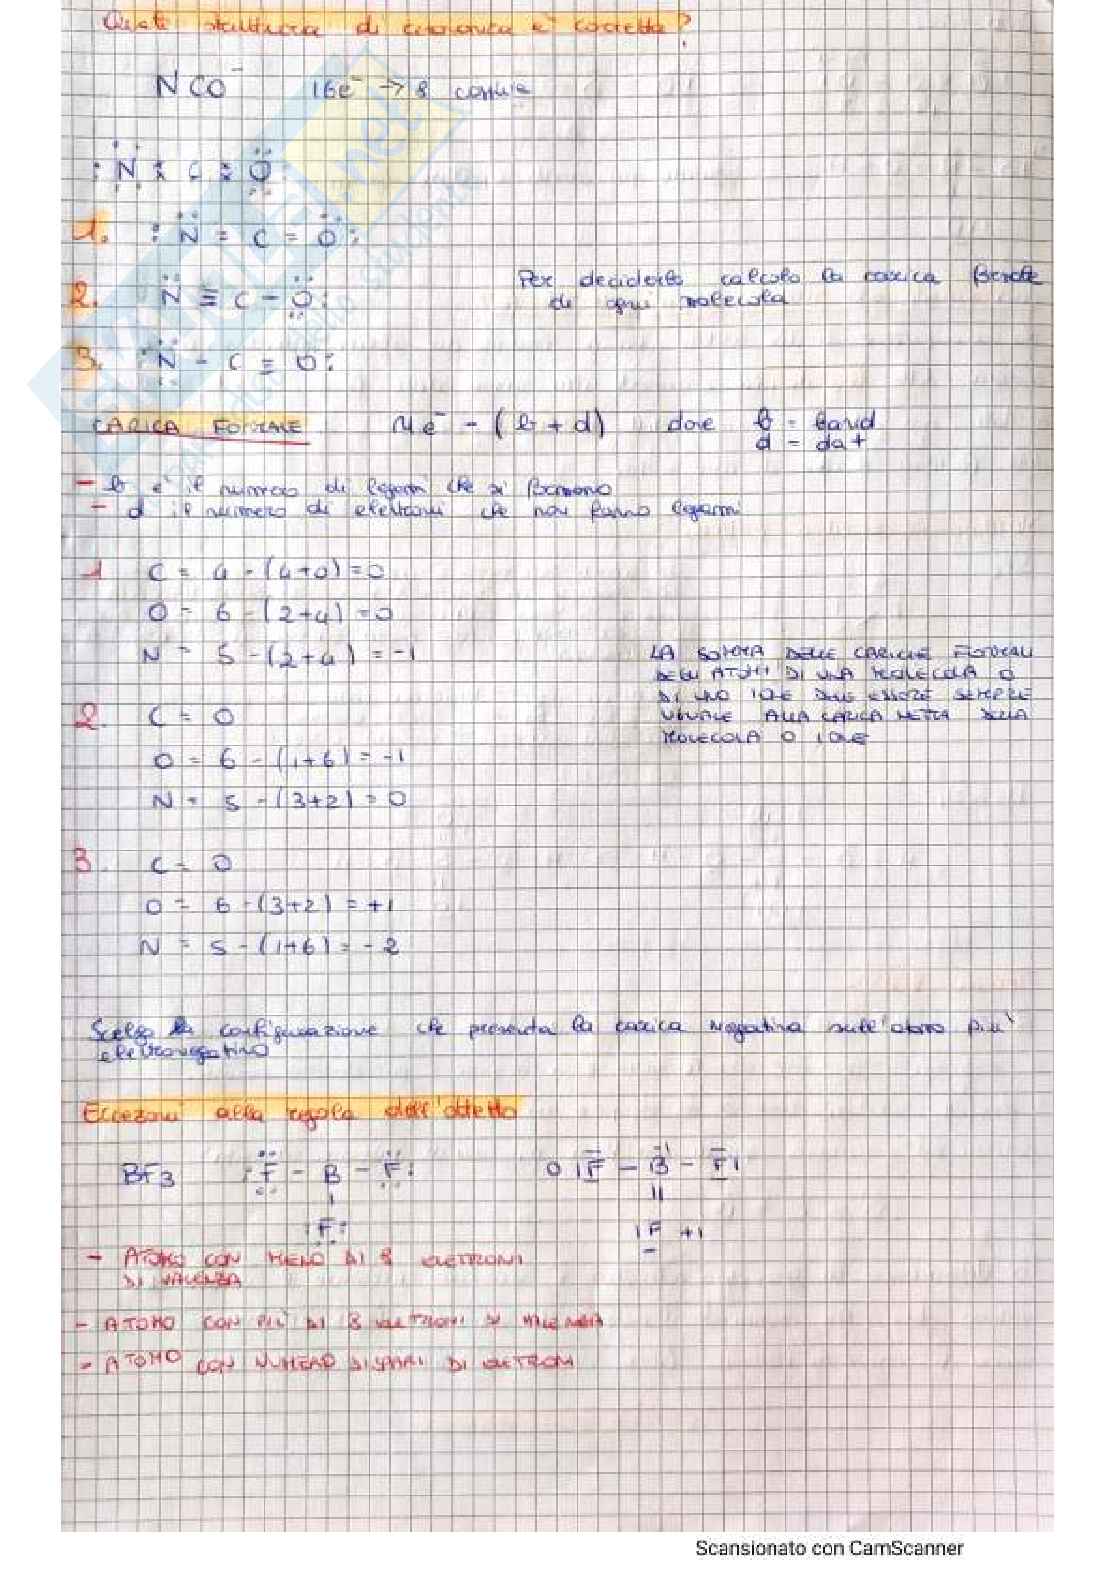 Quale struttura di risonanza è corretta?
NCO⁻ 16e⁻ → 8 coppie
:N : C : O
1. :N = C = O:
2. N ≡ C - O:
Per deciderlo calcolo la carica formale
di ogni molecola
3. :N - C ≡ O:
CARICA FORMALE Ne⁻ - (b + d) dove b = band
d = dot
- b è il numero di legami che si formano
- d il numero di elettroni che non fanno legami
1 C = 4 - (4+0) = 0
O = 6 - (2+4) = 0
N = 5 - (2+4) = -1
LA SOMMA DELLE CARICHE FORMALI
DEGLI ATOMI DI UNA MOLECOLA O
DI UNO IONE DEVE ESSERE SEMPRE
UGUALE ALLA CARICA NETTA DELLA
MOLECOLA O IONE
2. C = 0
O = 6 - (1+6) = -1
N = 5 - (3+2) = 0
3. C = 0
O = 6 - (3+2) = +1
N = 5 - (1+6) = -2
Scelgo la configurazione che presenta la carica negativa sull'atomo più
elettronegativo
Eccezioni alla regola dell'ottetto
BF3 :F - B - F: 0 |F - B - F|
:F: |F +1
- ATOMO CON MENO DI 8 ELETTRONI
DI VALENZA
- ATOMO CON PIÙ DI 8 ELETTRONI DI VALENZA
- ATOMO CON NUMERO DISPARI DI ELETTRONI
Scansionato con CamScanner